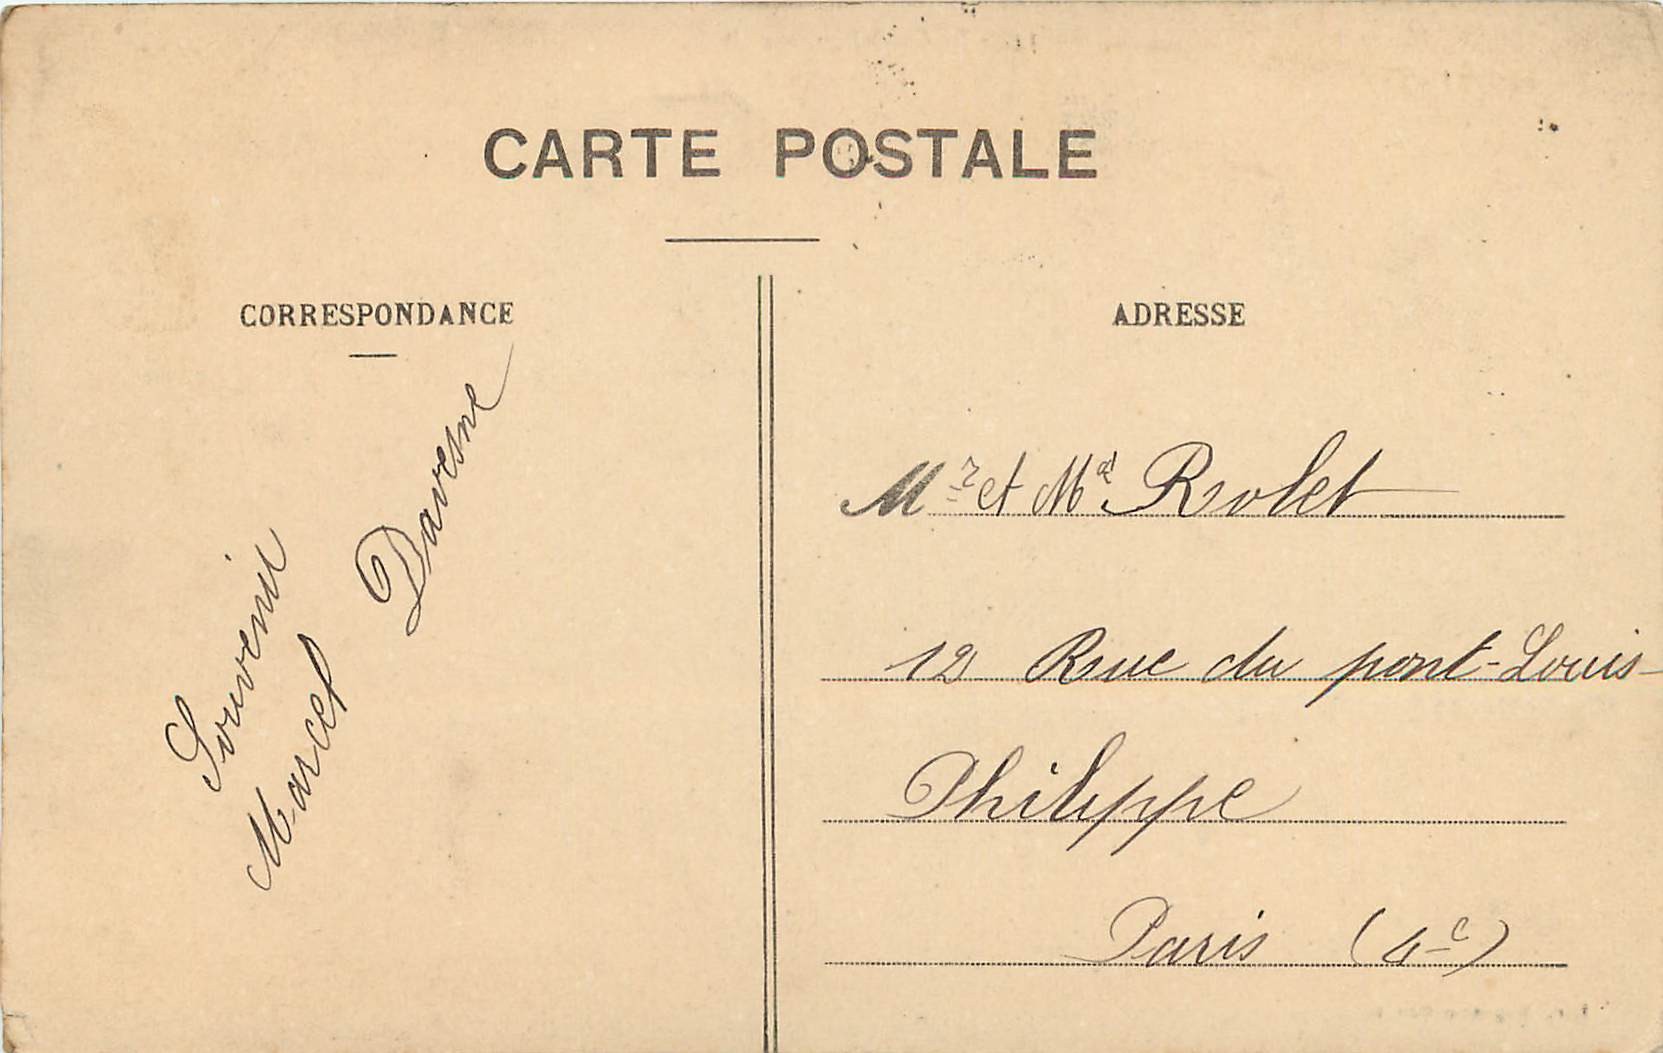 CARTE POSTALE
CORRESPONDANCE
Souvenir
Marcel Davesne
ADRESSE
Mr et Md Riolet
12 Rue du pont-Louis-
Philippe
Paris (4e)